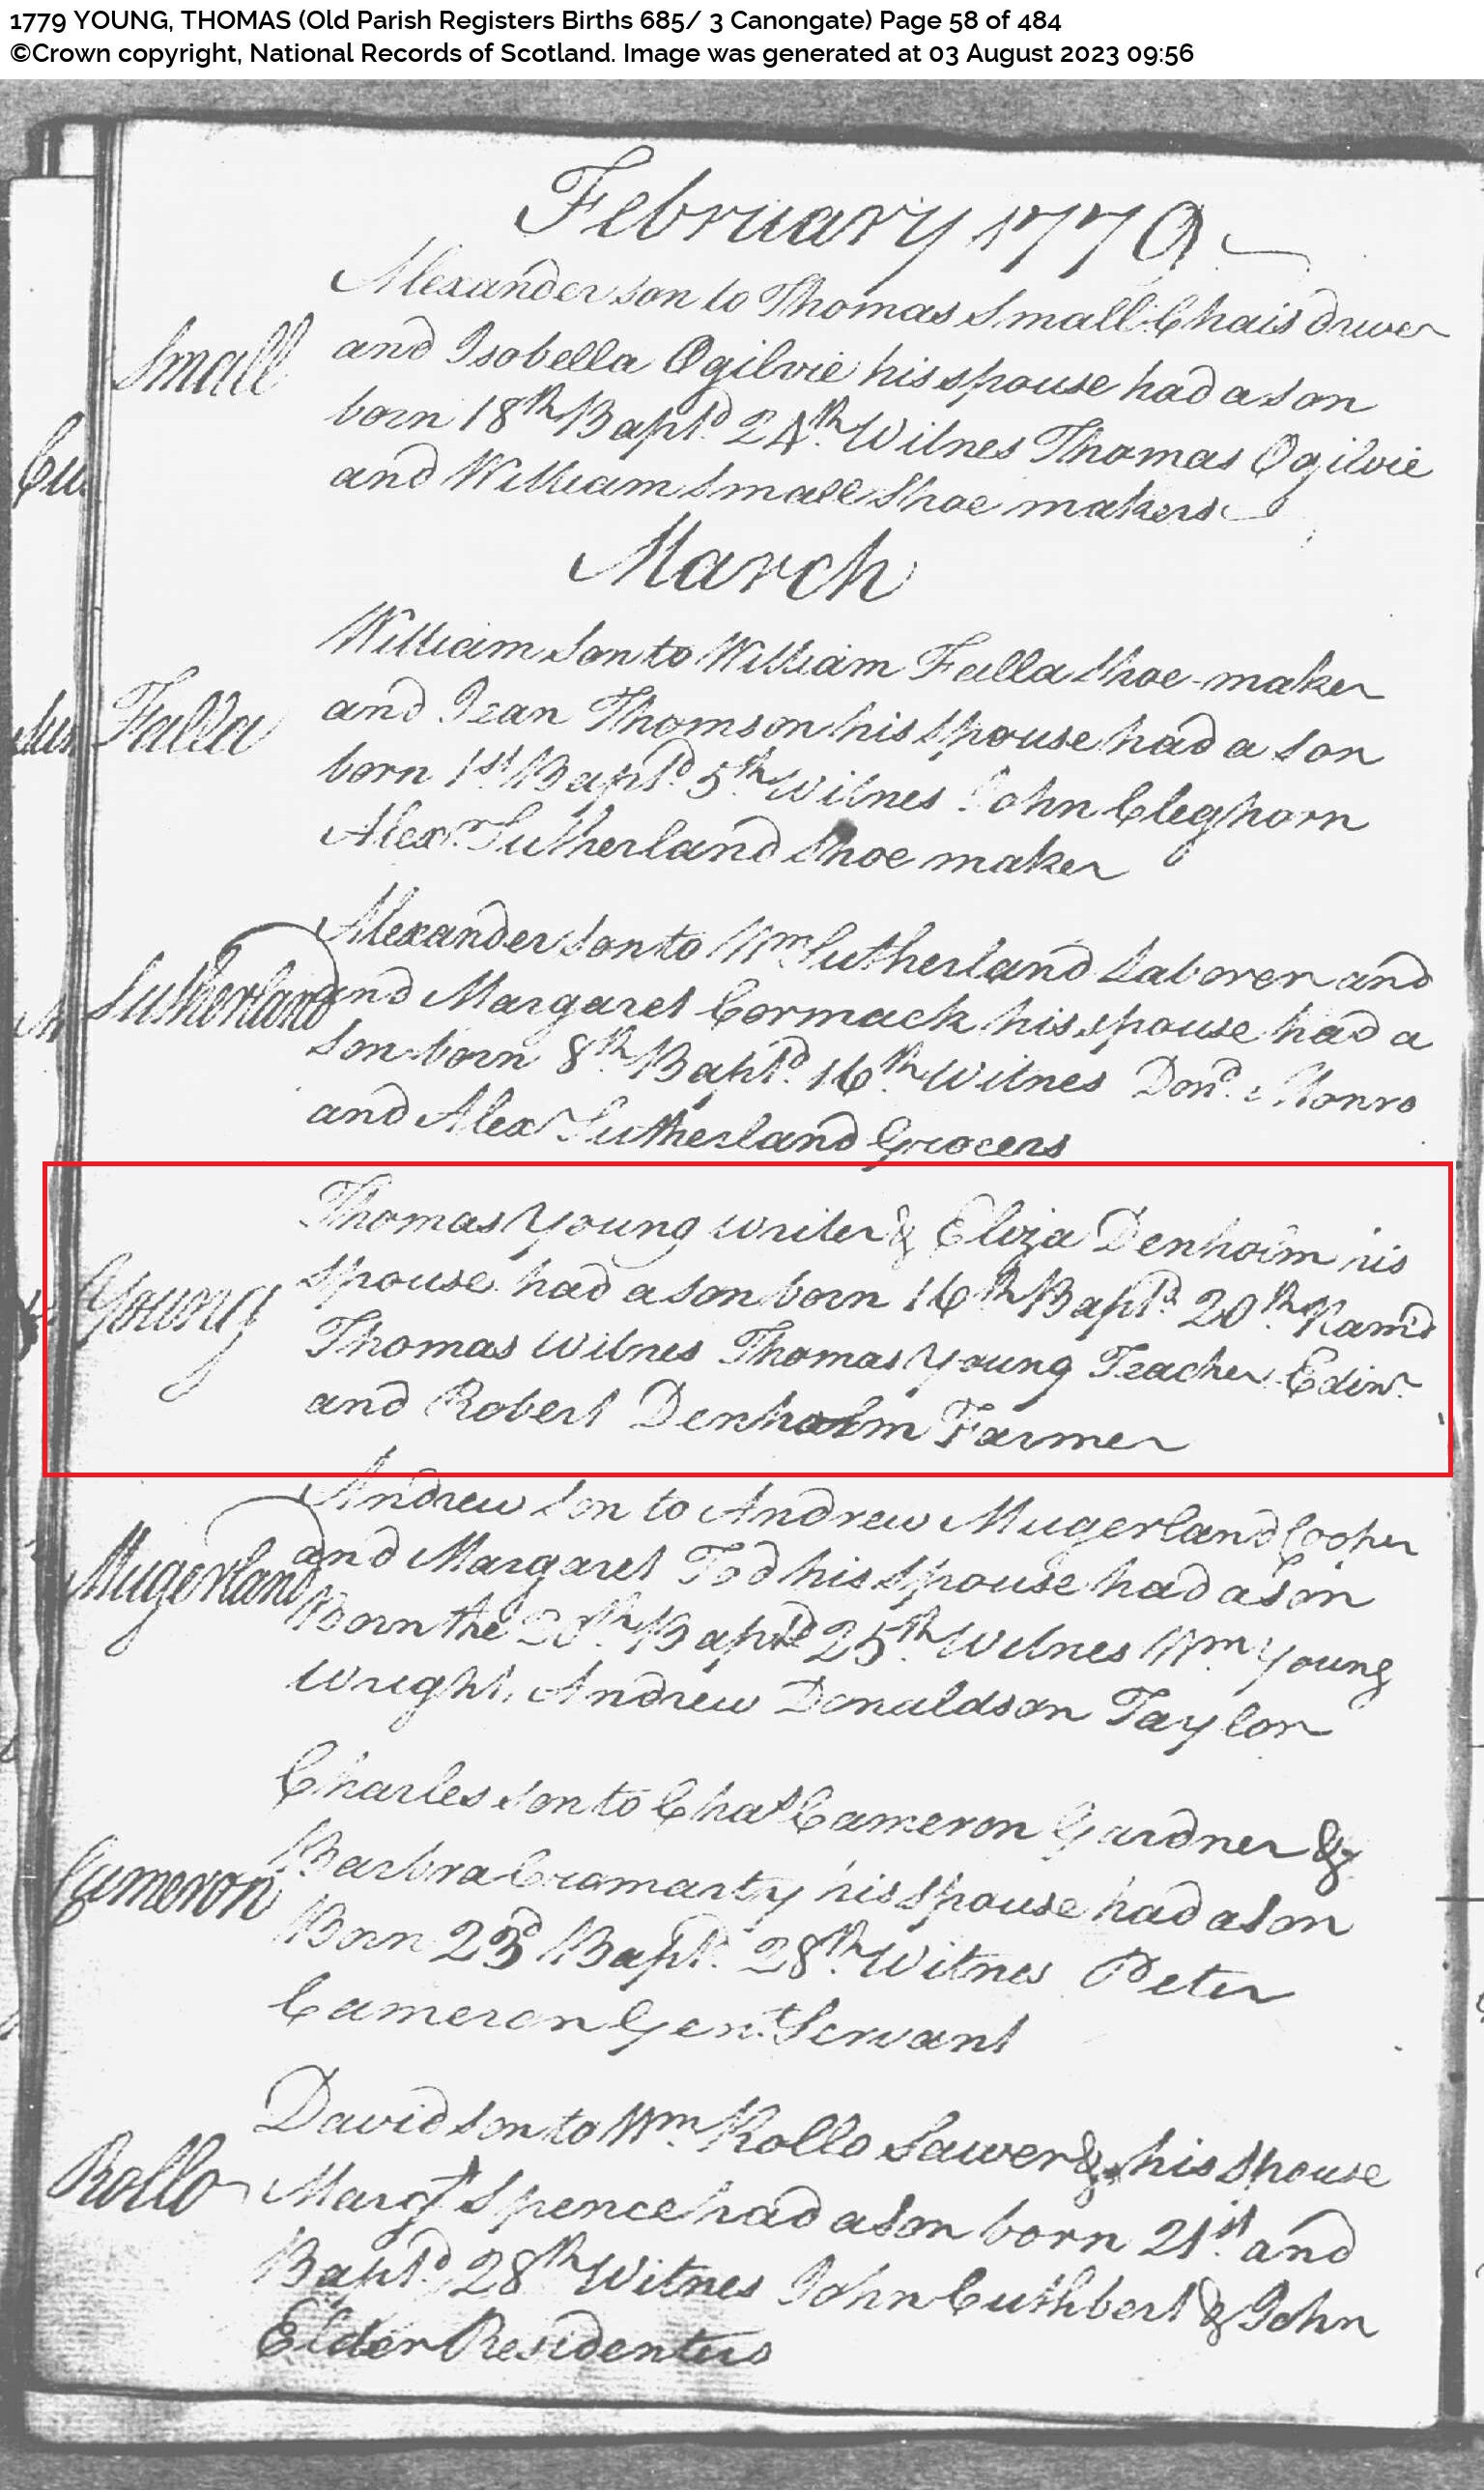 1779 YOUNG, THOMAS (Old Parish Registers Births 685/ 3 Canongate) Page 58 of 484
©Crown copyright, National Records of Scotland. Image was generated at 03 August 2023 09:56
February 1779
Alexander son to Thomas Small Chais driver
Small and Isobella Ogilvie his spouse had a son
born 18th Bapt.d 24th Witnes Thomas Ogilvie
and William Small Shoe makers
March
William Son to William Falla Shoe-maker
Falla and Jean Thomson his Spouse had a son
born 1st Bapt.d 5th Witnes John Cleghorn
Alexr Sutherland Shoe maker
Alexander Son to Wm Sutherland Laborer and
Sutherland and Margaret Cormack his spouse had a
Son born 8th Bapt.d 16th Witnes Dond. Monro
and Alexr Sutherland Grocers
Thomas Young writer & Eliza Denholm his
Young spouse had a son born 16th Bapt.d 20th Nam'd
Thomas Witnes Thomas Young Teacher Edinr
and Robert Denholm Farmer
Andrew Son to Andrew Mugerland Cooper
Mugerland and Margaret Tod his Spouse had a Son
Born the Bapt.d 25th Witnes Wm Young
Wright, Andrew Donaldson Taylor
Charles son to Chas Cameron Gardner &
Cameron Barbra Cromarty his Spouse had a Son
Born 23d Bapt. 28th Witnes Peter
Cameron Gent Servant
David Son to Wm Rollo Sawer & his Spouse
Rollo Margt Spence had a Son born 21st and
Bapt.d 28th Witnes John Cuthbert & John
Elder Residenters